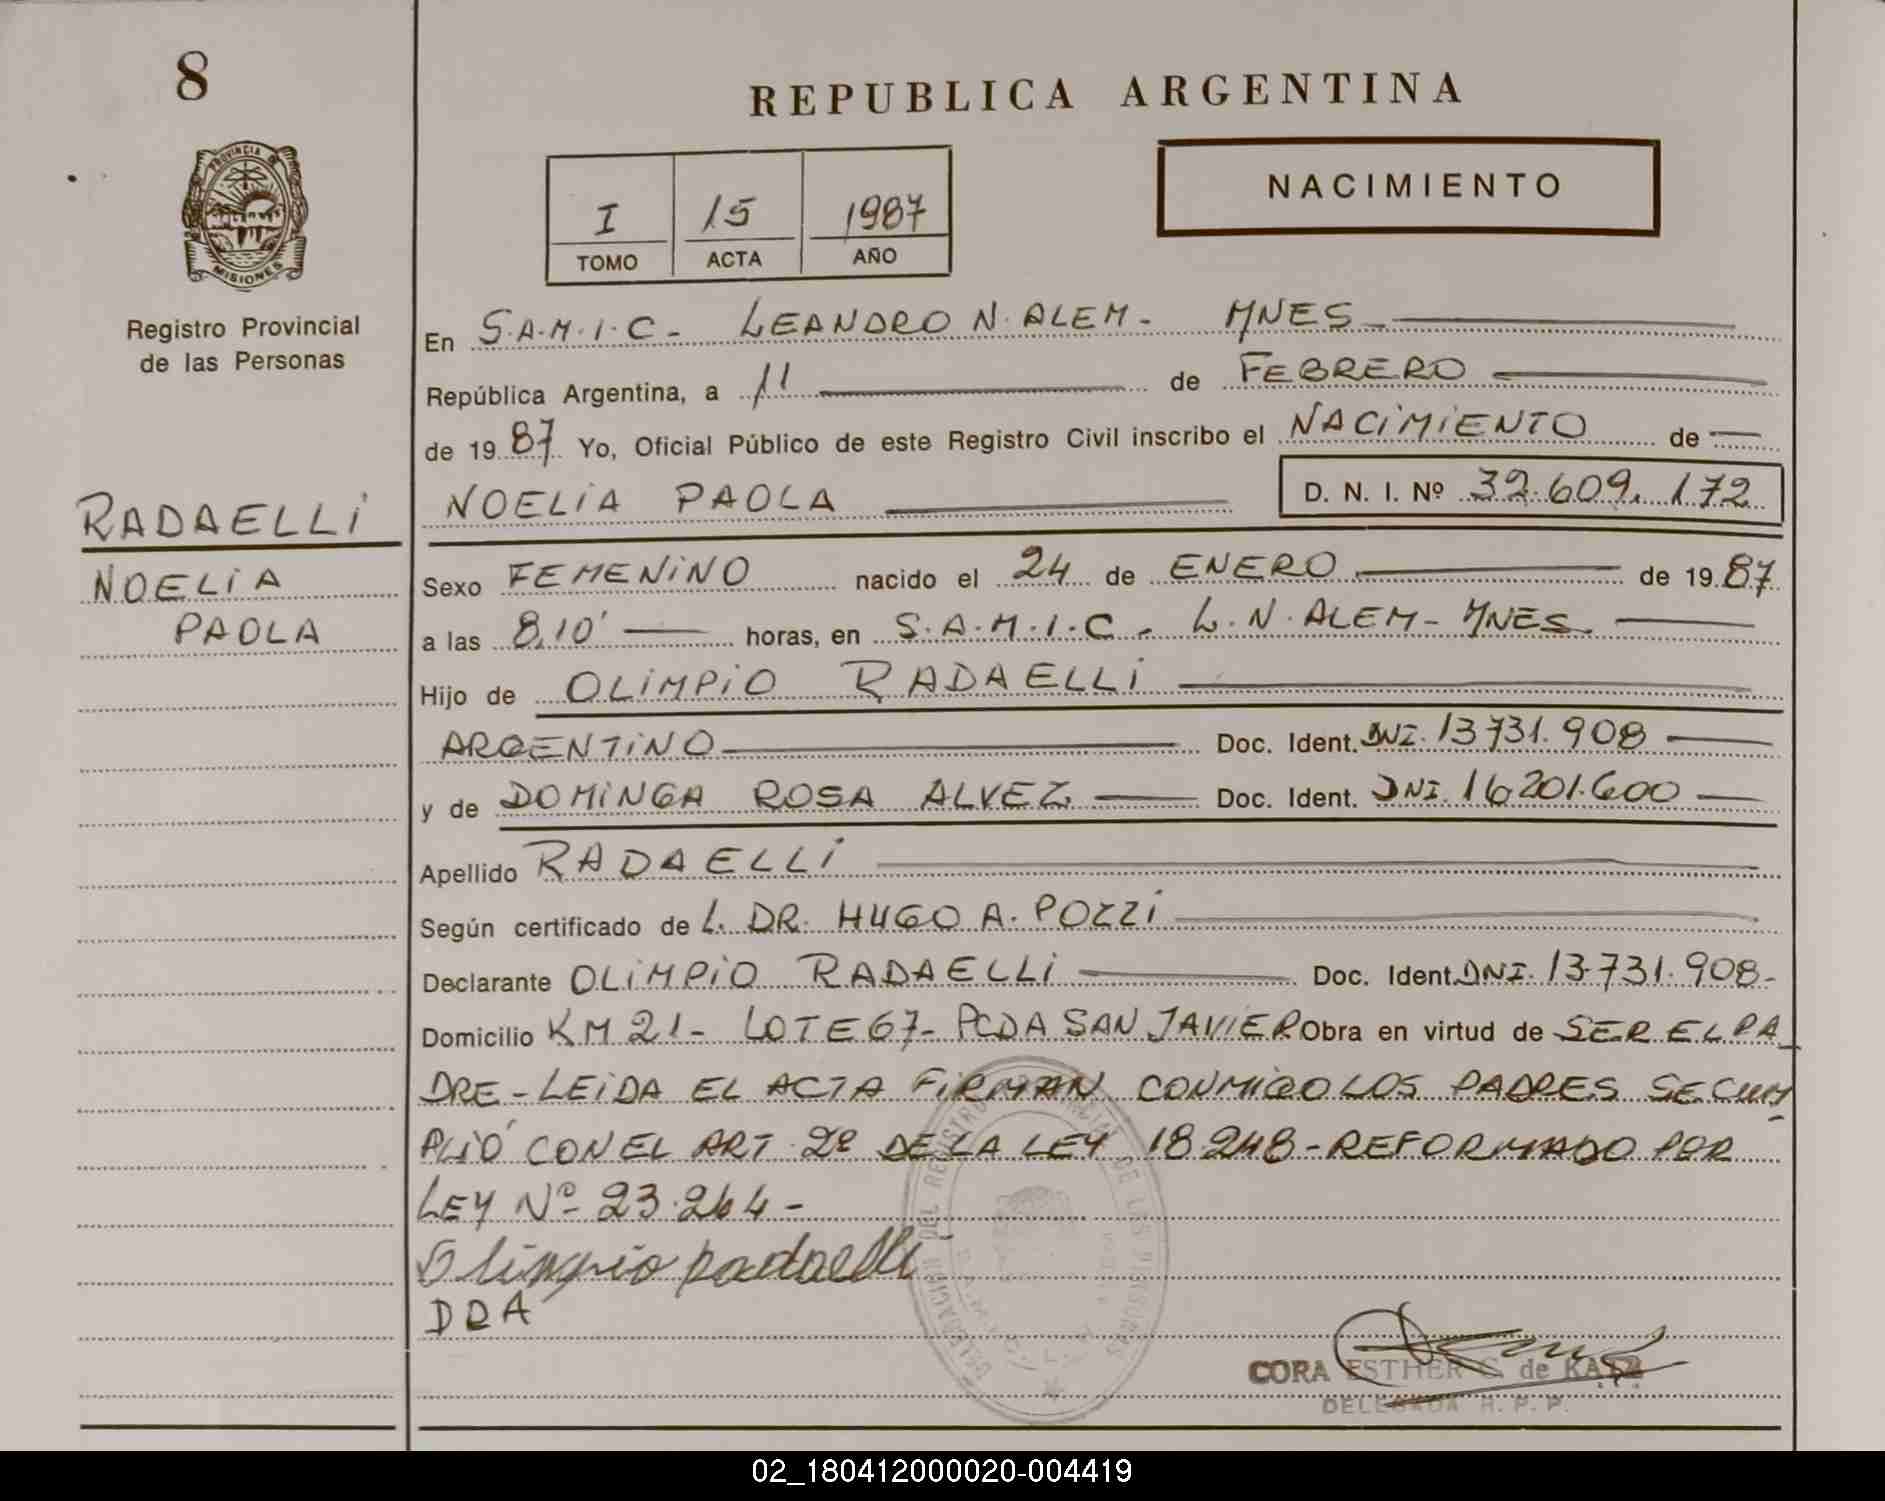 8
REPUBLICA ARGENTINA
PROVINCIA DE
MISIONES
Registro Provincial
de las Personas
I 15 1987
TOMO ACTA AÑO
NACIMIENTO
En S.A.M.I.C - LEANDRO N. ALEM - MNES
República Argentina, a 11 de FEBRERO
de 1987 Yo, Oficial Público de este Registro Civil inscribo el NACIMIENTO de
NOELIA PAOLA D. N. I. Nº 32.609.172
RADAELLI
NOELIA
PAOLA
Sexo FEMENINO nacido el 24 de ENERO de 1987
a las 8,10' horas, en S.A.M.I.C - L.N. ALEM - MNES
Hijo de OLIMPIO RADAELLI
ARGENTINO Doc. Ident. DNI. 13.731.908
y de DOMINGA ROSA ALVEZ Doc. Ident. DNI. 16.201.600
Apellido RADAELLI
Según certificado de L. DR. HUGO A. POZZI
Declarante OLIMPIO RADAELLI Doc. Ident. DNI. 13.731.908-
Domicilio KM 21 - LOTE 67 - PCDA SAN JAVIER Obra en virtud de SER EL PA
DRE - LEIDA EL ACTA FIRMAN CONMIGO LOS PADRES SE CUM
PLIÓ CON EL ART 2º DE LA LEY 18.248 - REFORMADO POR
LEY Nº 23.264 -
Olimpio Radaelli
DRA
CORA ESTHER G. de KATZ
DELEGADA R. P. P.
02_180412000020-004419